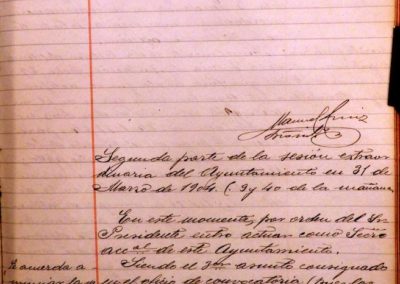 Manuel Ruiz
Segunda parte de la sesión extraor
dinaria del Ayuntamiento en 31 de
Marzo de 1904. (9 y 40 de la mañana
En este momento, por orden del Sr.
Presidente entro actuar como Secrº
accal de este Ayuntamiento.
Se acuerda a
Siendo el 3er asunto consignado
en el oficio de convocatoria